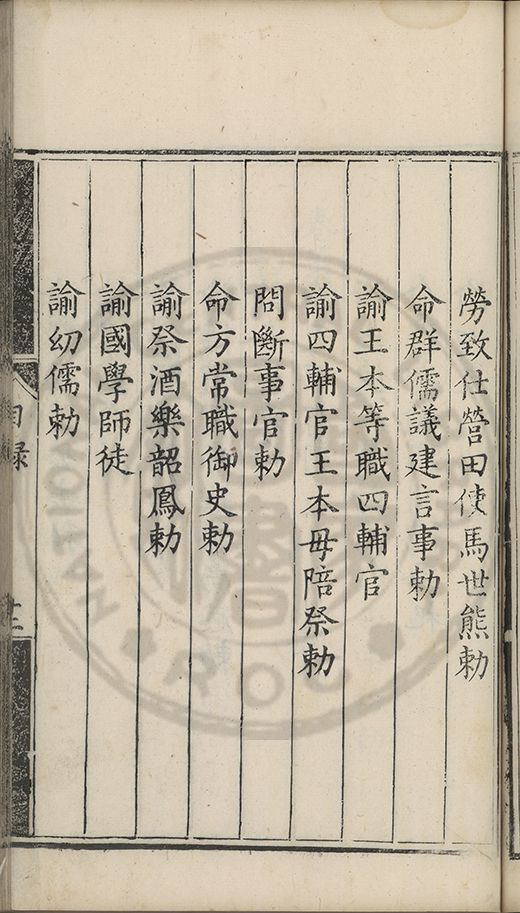 勞致仕營田使馬世熊勅
命群儒議建言事勅
諭王本等職四輔官
諭四輔官王本毋陪祭勅
問斷事官勅
命方常職御史勅
諭祭酒樂韶鳳勅
諭國學師徒
諭幼儒勅
目録